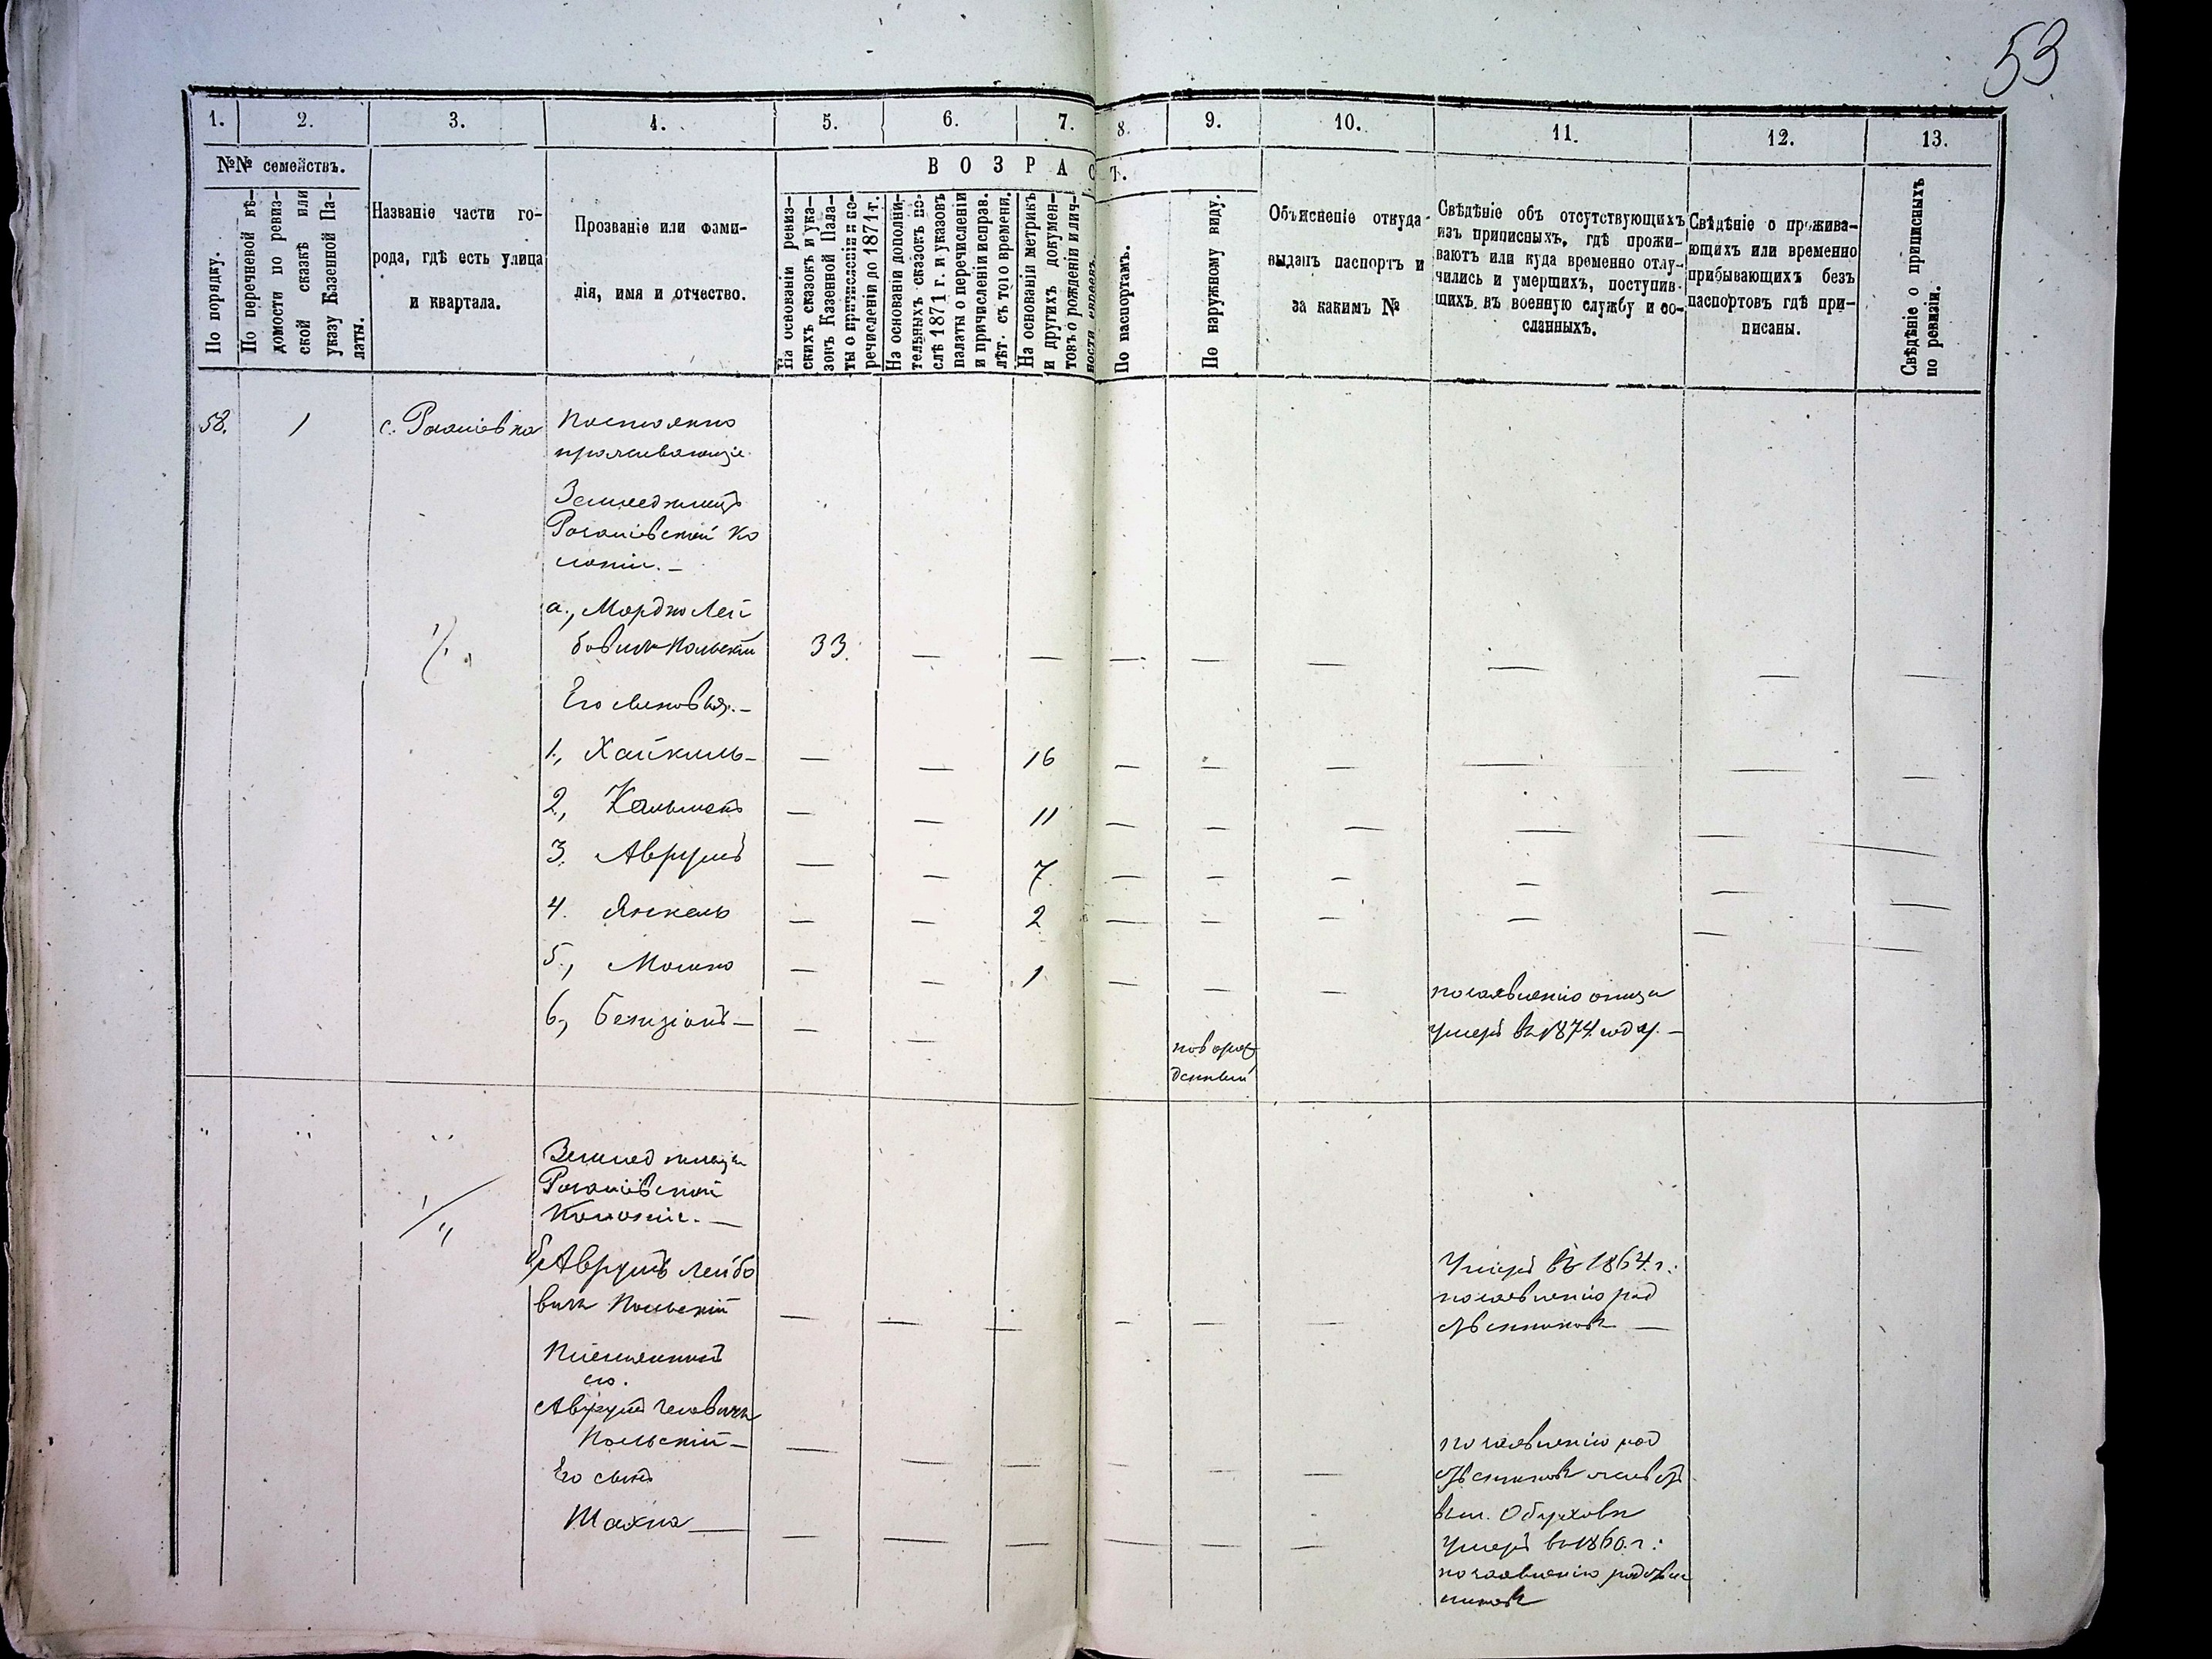 53
1.
2.
3.
4.
5.
6.
7.
8.
9.
10.
11.
12.
13.
№№ семействъ.
ВОЗРАСТ.
По порядку.
По перечневой вѣ-
домости по ревиз-
ской сказкѣ или
указу Казенной Па-
латы.
Названіе части го-
рода, гдѣ есть улица
и квартала.
Прозваніе или фами-
лія, имя и отчество.
На основаніи ревиз-
скихъ сказокъ и ука-
зокъ Казенной Пала-
ты о причисленіи и пе-
речисленіи до 1871 г.
На основаніи дополни-
тельныхъ сказокъ по-
слѣ 1871 г. и указовъ
палаты о перечисленіи
и причисленіи исправ.
лѣт. съ того времени.
На основаніи метрикъ
и другихъ докумен-
товъ о рожденіи и лич-
ности евреевъ.
По паспортамъ.
По наружному виду.
Объясненіе откуда
выданъ паспортъ и
за какимъ №
Свѣдѣніе объ отсутствующихъ
изъ приписныхъ, гдѣ прожи-
ваютъ или куда временно отлу-
чились и умершихъ, поступив-
шихъ въ военную службу и со-
сланныхъ.
Свѣдѣніе о прожива-
ющихъ или временно
прибывающихъ безъ
паспортовъ гдѣ при-
писаны.
Свѣдѣніе о приписныхъ
по ревизіи.
58. 1 с. Рогаіовка Постоянно
проживающіе
Земледѣлецъ
Рогаіовской Ко
лоніи. —
а., Мордко Лей
бовичъ Польскій 33. — — — — — — — —
Его сыновья. —
1., Хайкиль — — — 16 — — — — — —
2., Кальманъ — — 11 — — — — — —
3. Аврумъ — — 7 — — — — — —
4. Янкель — — 2 — — — — — —
5., Мошко — — 1 — — —
6., Бенціонъ — — — новорож
денный
по заявленію отца
умеръ въ 1874 году. —
" " "
Земледѣлецъ
Рогаіовской
Колоніи. —
б., Аврумъ Лейбо
вичъ Польскій — — — — — —
Умеръ въ 1864 г.:
по заявленію род
ственниковъ —
Племянникъ
его.
Аврумъ
Польскій — — — — — — —
по заявленію род
ственниковъ
въ м. Обуховѣ
Его сынъ
Шахна — — — — — — —
Умеръ въ 1860. г.:
по заявленію родствен
никовъ